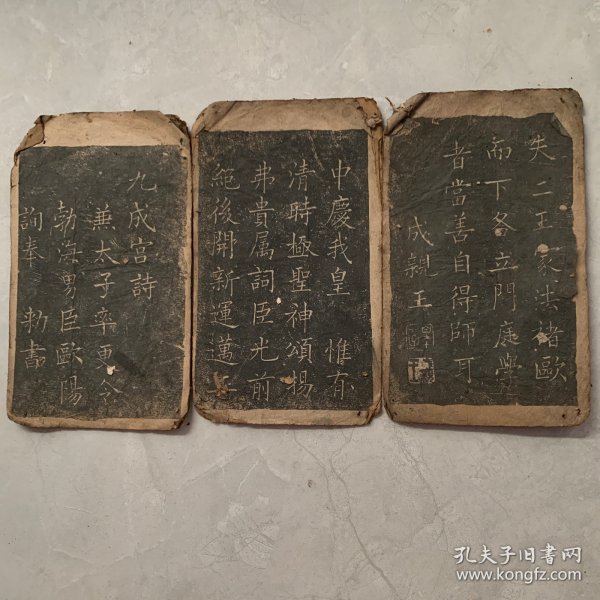 失二王家法褚歐
而下各立門庭學
者當善自得師耳
成親王
中慶我皇 惟有
清時極聖神頌揚
弗貴属詞臣光前
絶後開新運邁
九成宫詩
兼太子率更令
勃海男臣歐陽
詢奉 勅書
孔夫子旧书网
www.kongfz.com